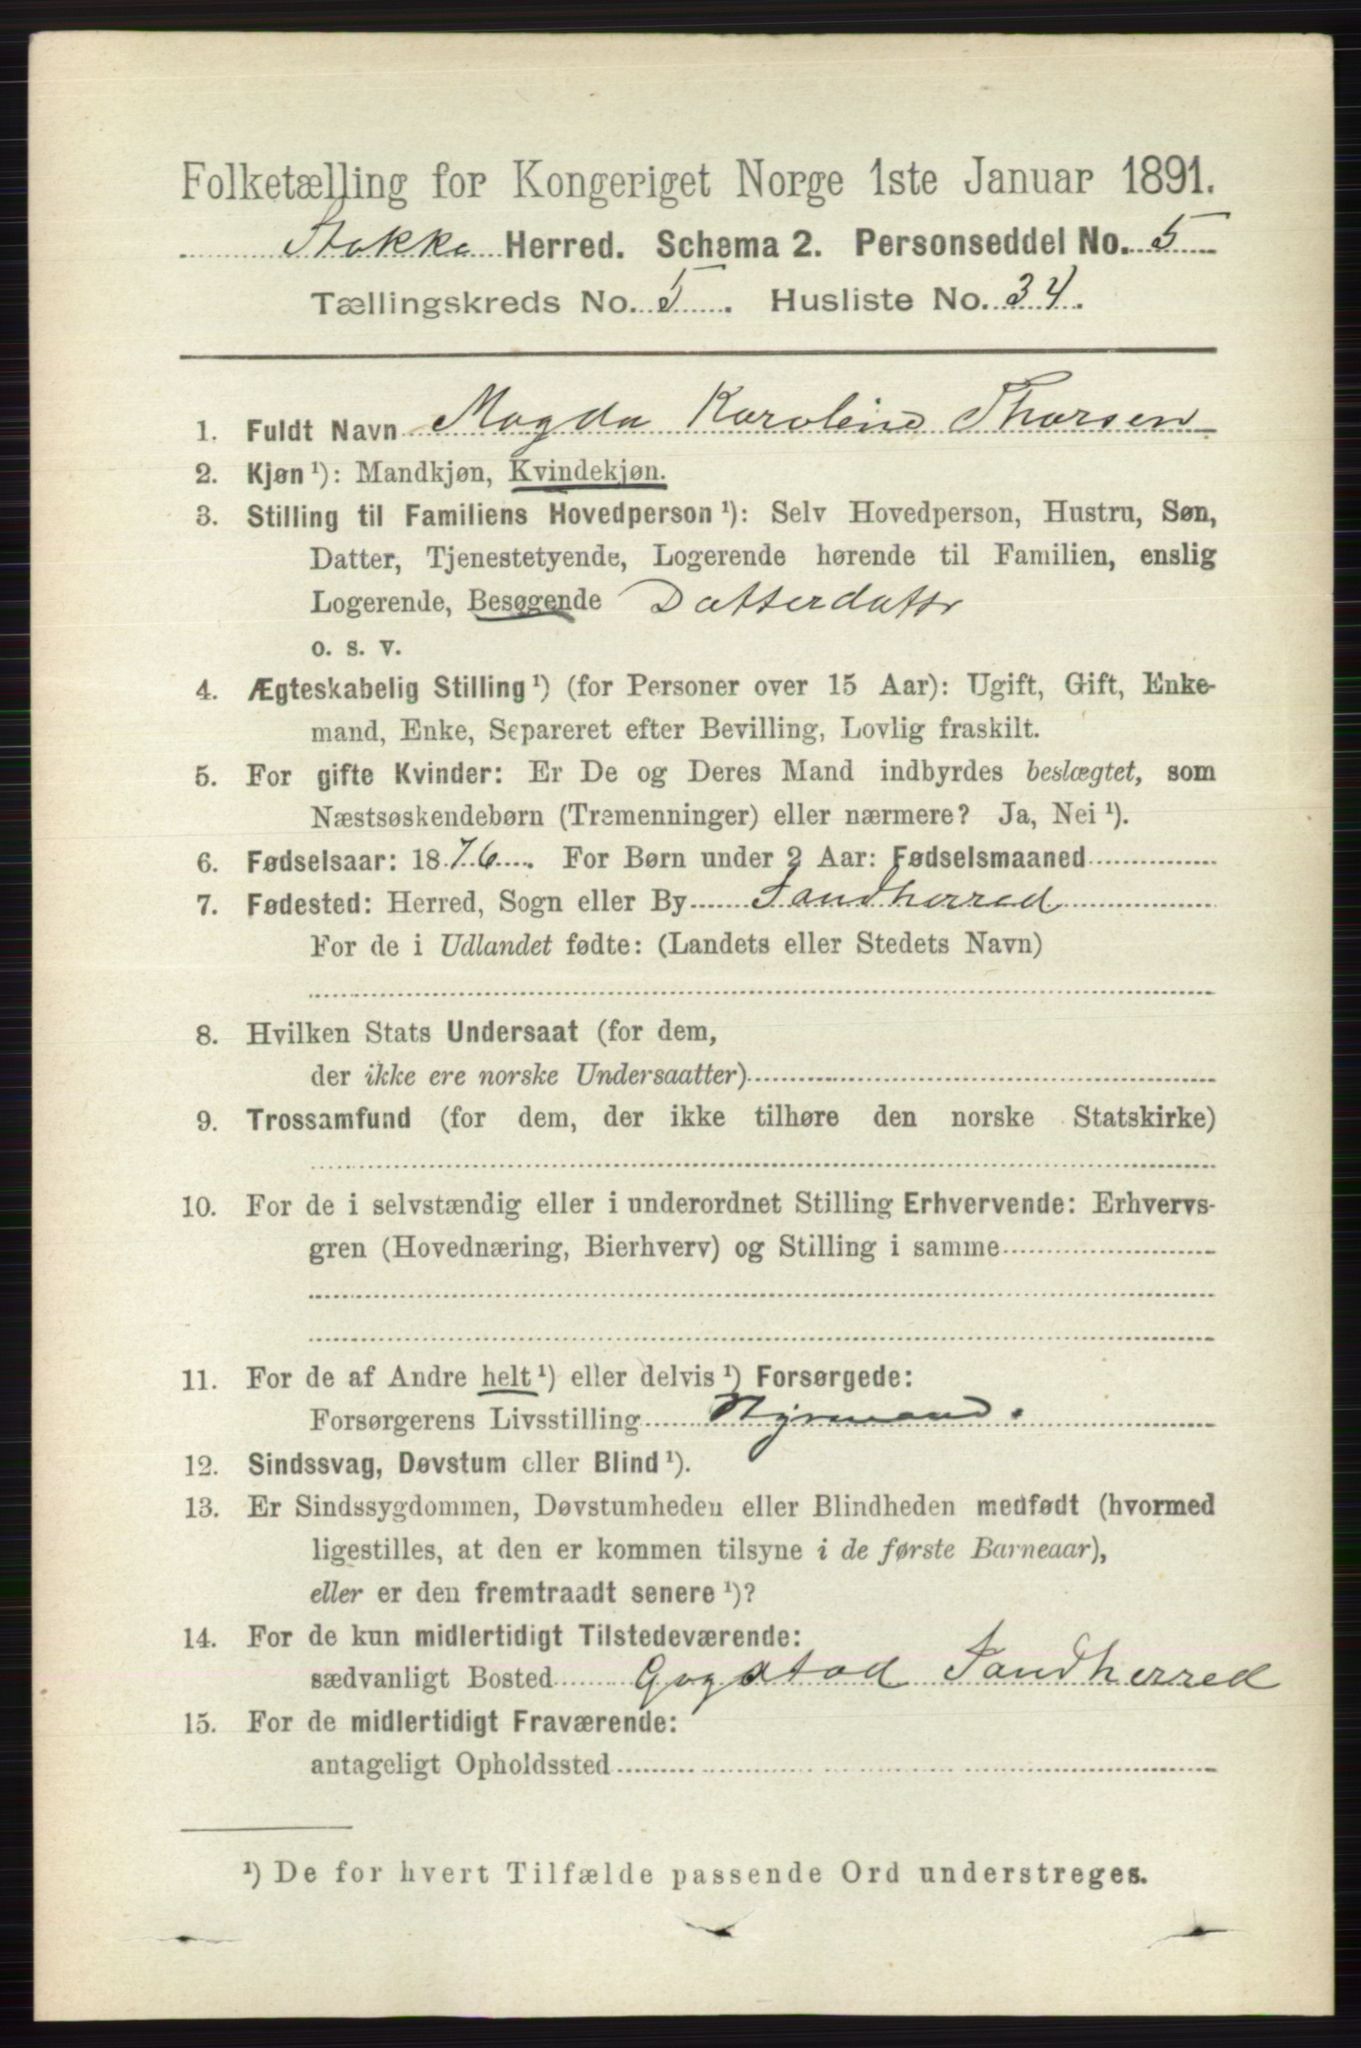 Folketælling for Kongeriget Norge 1ste Januar 1891.
Stokke Herred. Schema 2. Personseddel No. 5
Tællingskreds No. 5. Husliste No. 34.
1. Fuldt Navn Magda Karoline Thorsen
2. Kjøn ¹): Mandkjøn, Kvindekjøn.
3. Stilling til Familiens Hovedperson ¹): Selv Hovedperson, Hustru, Søn,
Datter, Tjenestetyende, Logerende hørende til Familien, enslig
Logerende, Besøgende Datterdatter
o. s. v.
4. Ægteskabelig Stilling ¹) (for Personer over 15 Aar): Ugift, Gift, Enke-
mand, Enke, Separeret efter Bevilling, Lovlig fraskilt.
5. For gifte Kvinder: Er De og Deres Mand indbyrdes beslægtet, som
Næstsøskendebørn (Tremenninger) eller nærmere? Ja, Nei ¹).
6. Fødselsaar: 1876. For Børn under 2 Aar: Fødselsmaaned
7. Fødested: Herred, Sogn eller By Sandherred
For de i Udlandet fødte: (Landets eller Stedets Navn)
8. Hvilken Stats Undersaat (for dem,
der ikke ere norske Undersaatter)
9. Trossamfund (for dem, der ikke tilhøre den norske Statskirke)
10. For de i selvstændig eller i underordnet Stilling Erhvervende: Erhvervs-
gren (Hovednæring, Bierhverv) og Stilling i samme
11. For de af Andre helt ¹) eller delvis ¹) Forsørgede:
Forsørgerens Livsstilling Styrmand.
12. Sindssvag, Døvstum eller Blind ¹).
13. Er Sindssygdommen, Døvstumheden eller Blindheden medfødt (hvormed
ligestilles, at den er kommen tilsyne i de første Barneaar),
eller er den fremtraadt senere ¹)?
14. For de kun midlertidigt Tilstedeværende:
sædvanligt Bosted Gogstad Sandherred
15. For de midlertidigt Fraværende:
antageligt Opholdssted
¹) De for hvert Tilfælde passende Ord understreges.